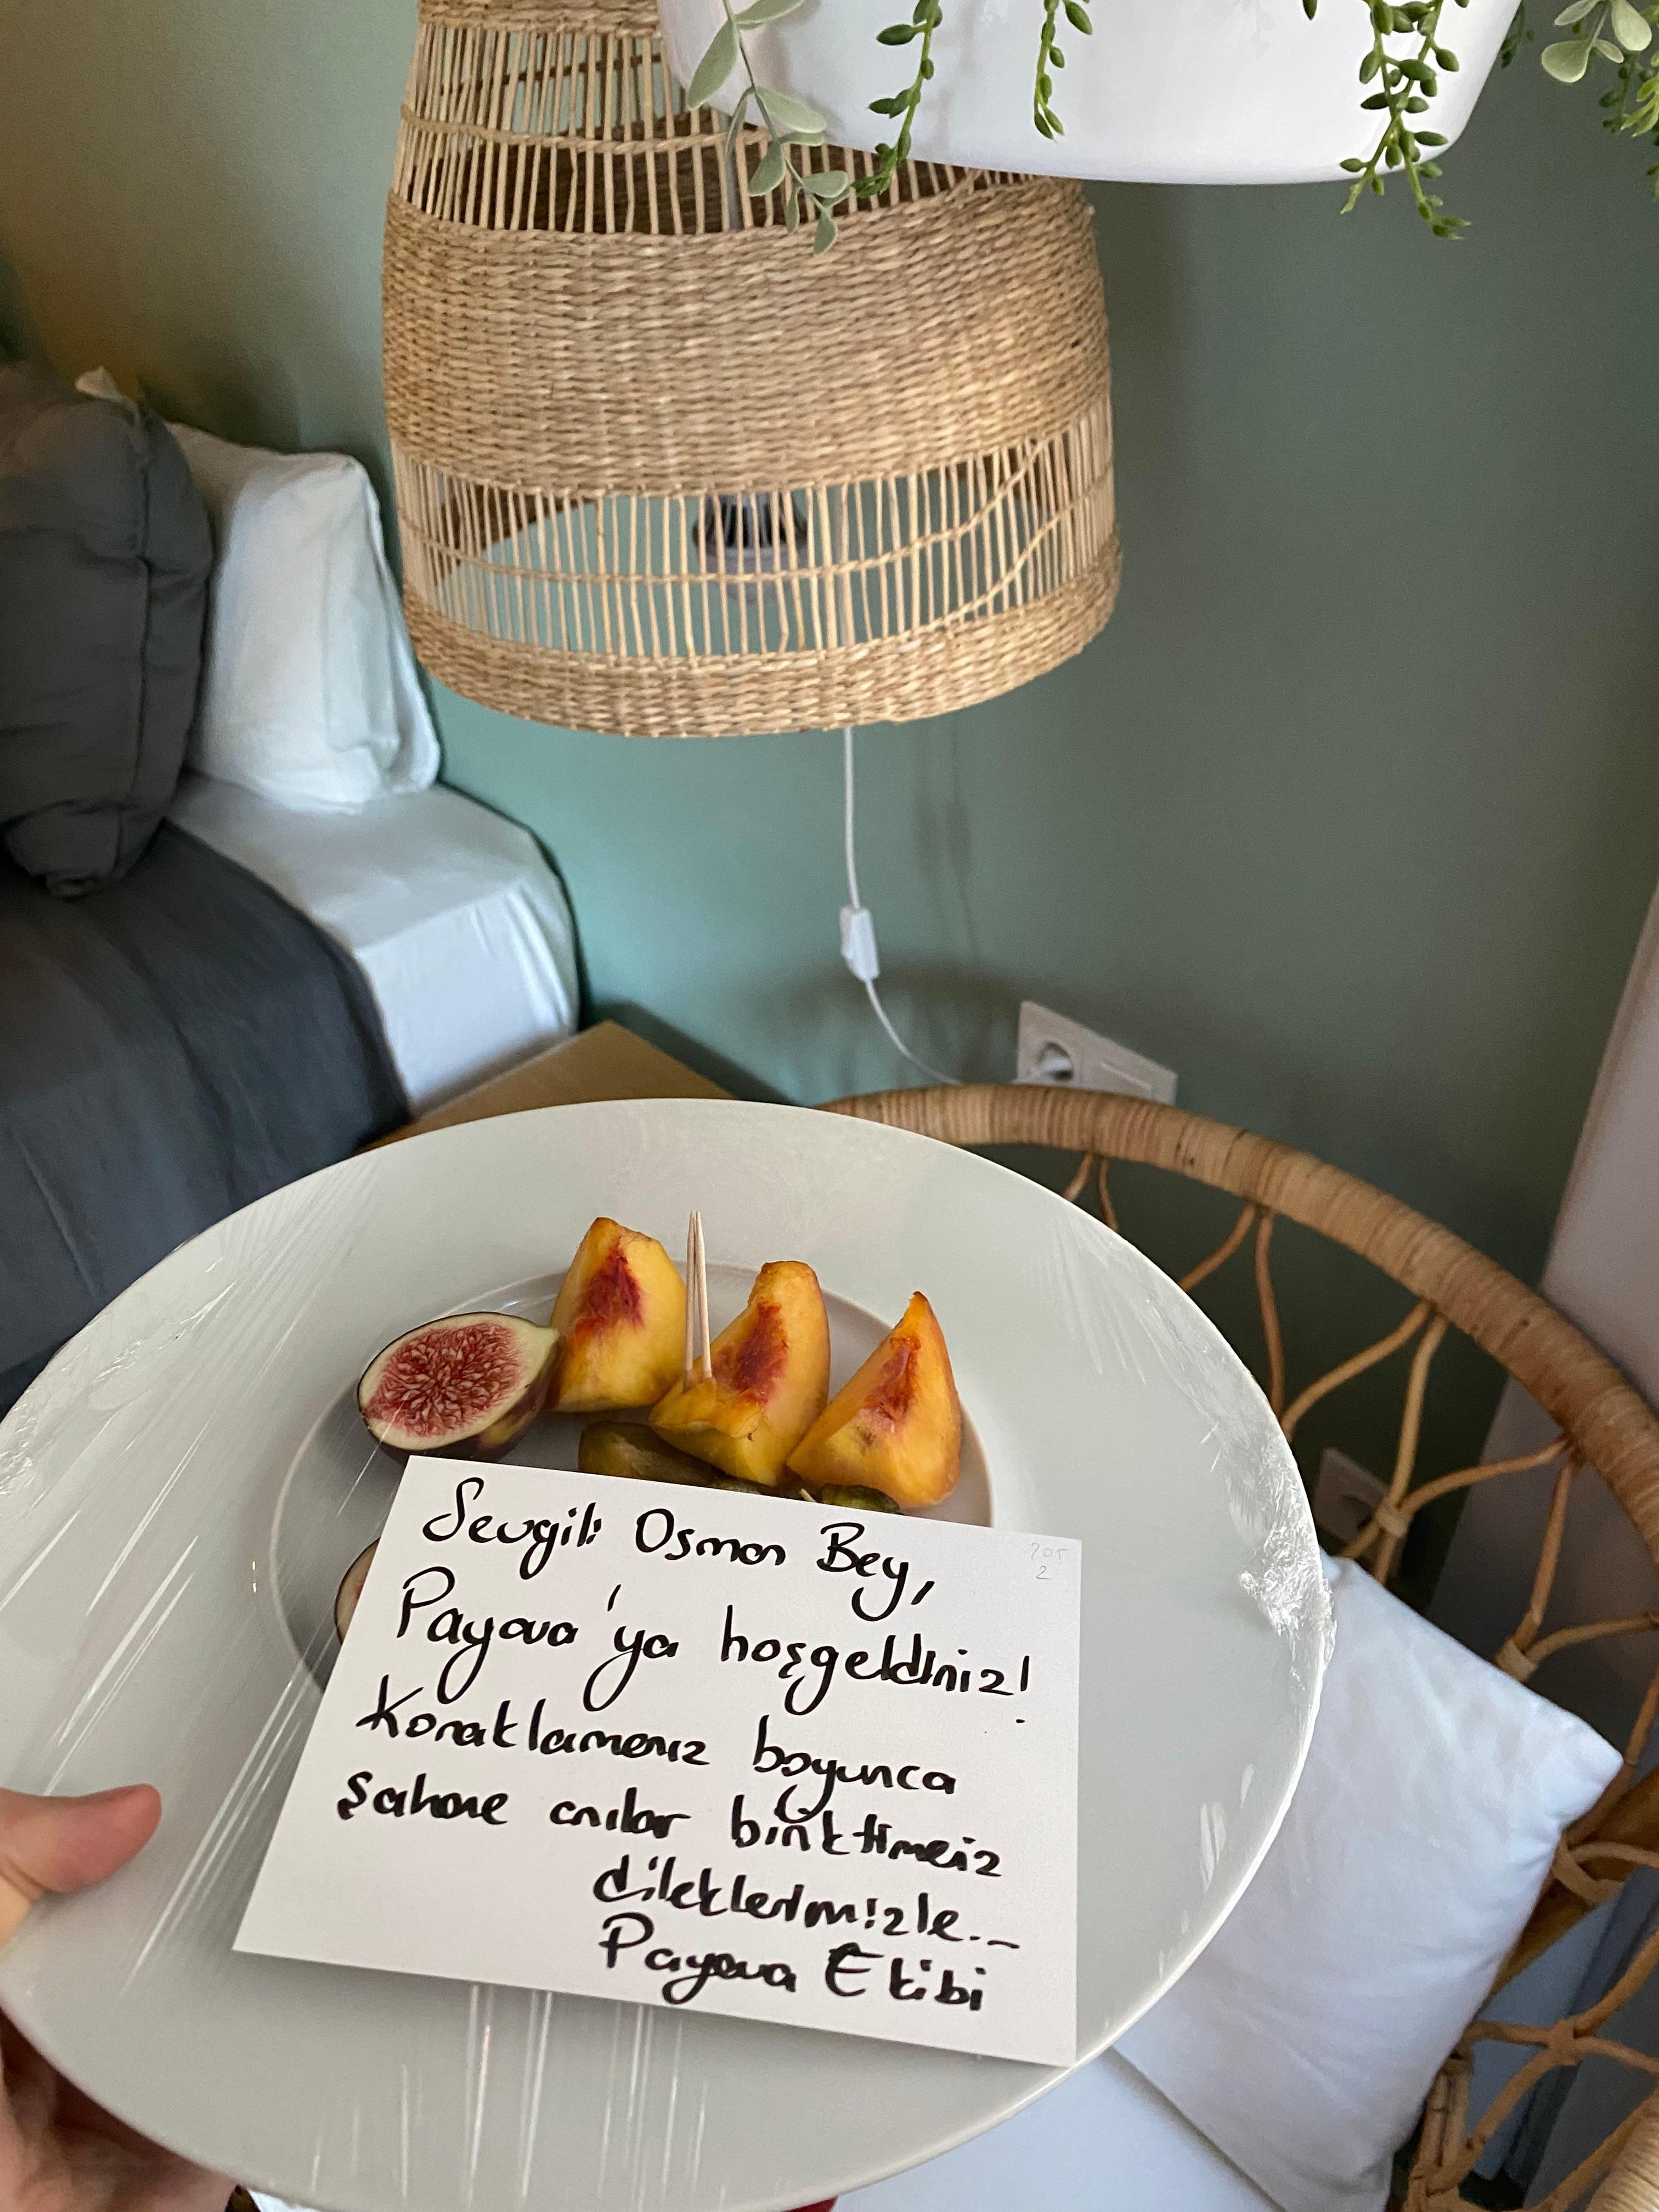 Sevgili Osman Bey,
Payava'ya hoşgeldiniz!
Konaklamanız boyunca
şahane anılar biriktirmeniz
dileklerimizle...
Payava Ekibi
205
2